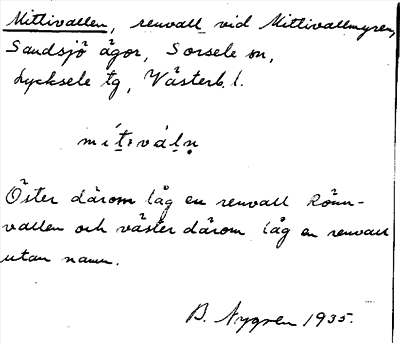 Mittivallen, renvall vid Mittivallmyren,
Sandsjö ägor, Sorsele sn,
Lycksele tg, Västerb. l.
mítiváln̥
Öster därom låg en renvall Rönn-
vallen och väster därom låg en renvall
utan namn.
B. Nygren 1935.